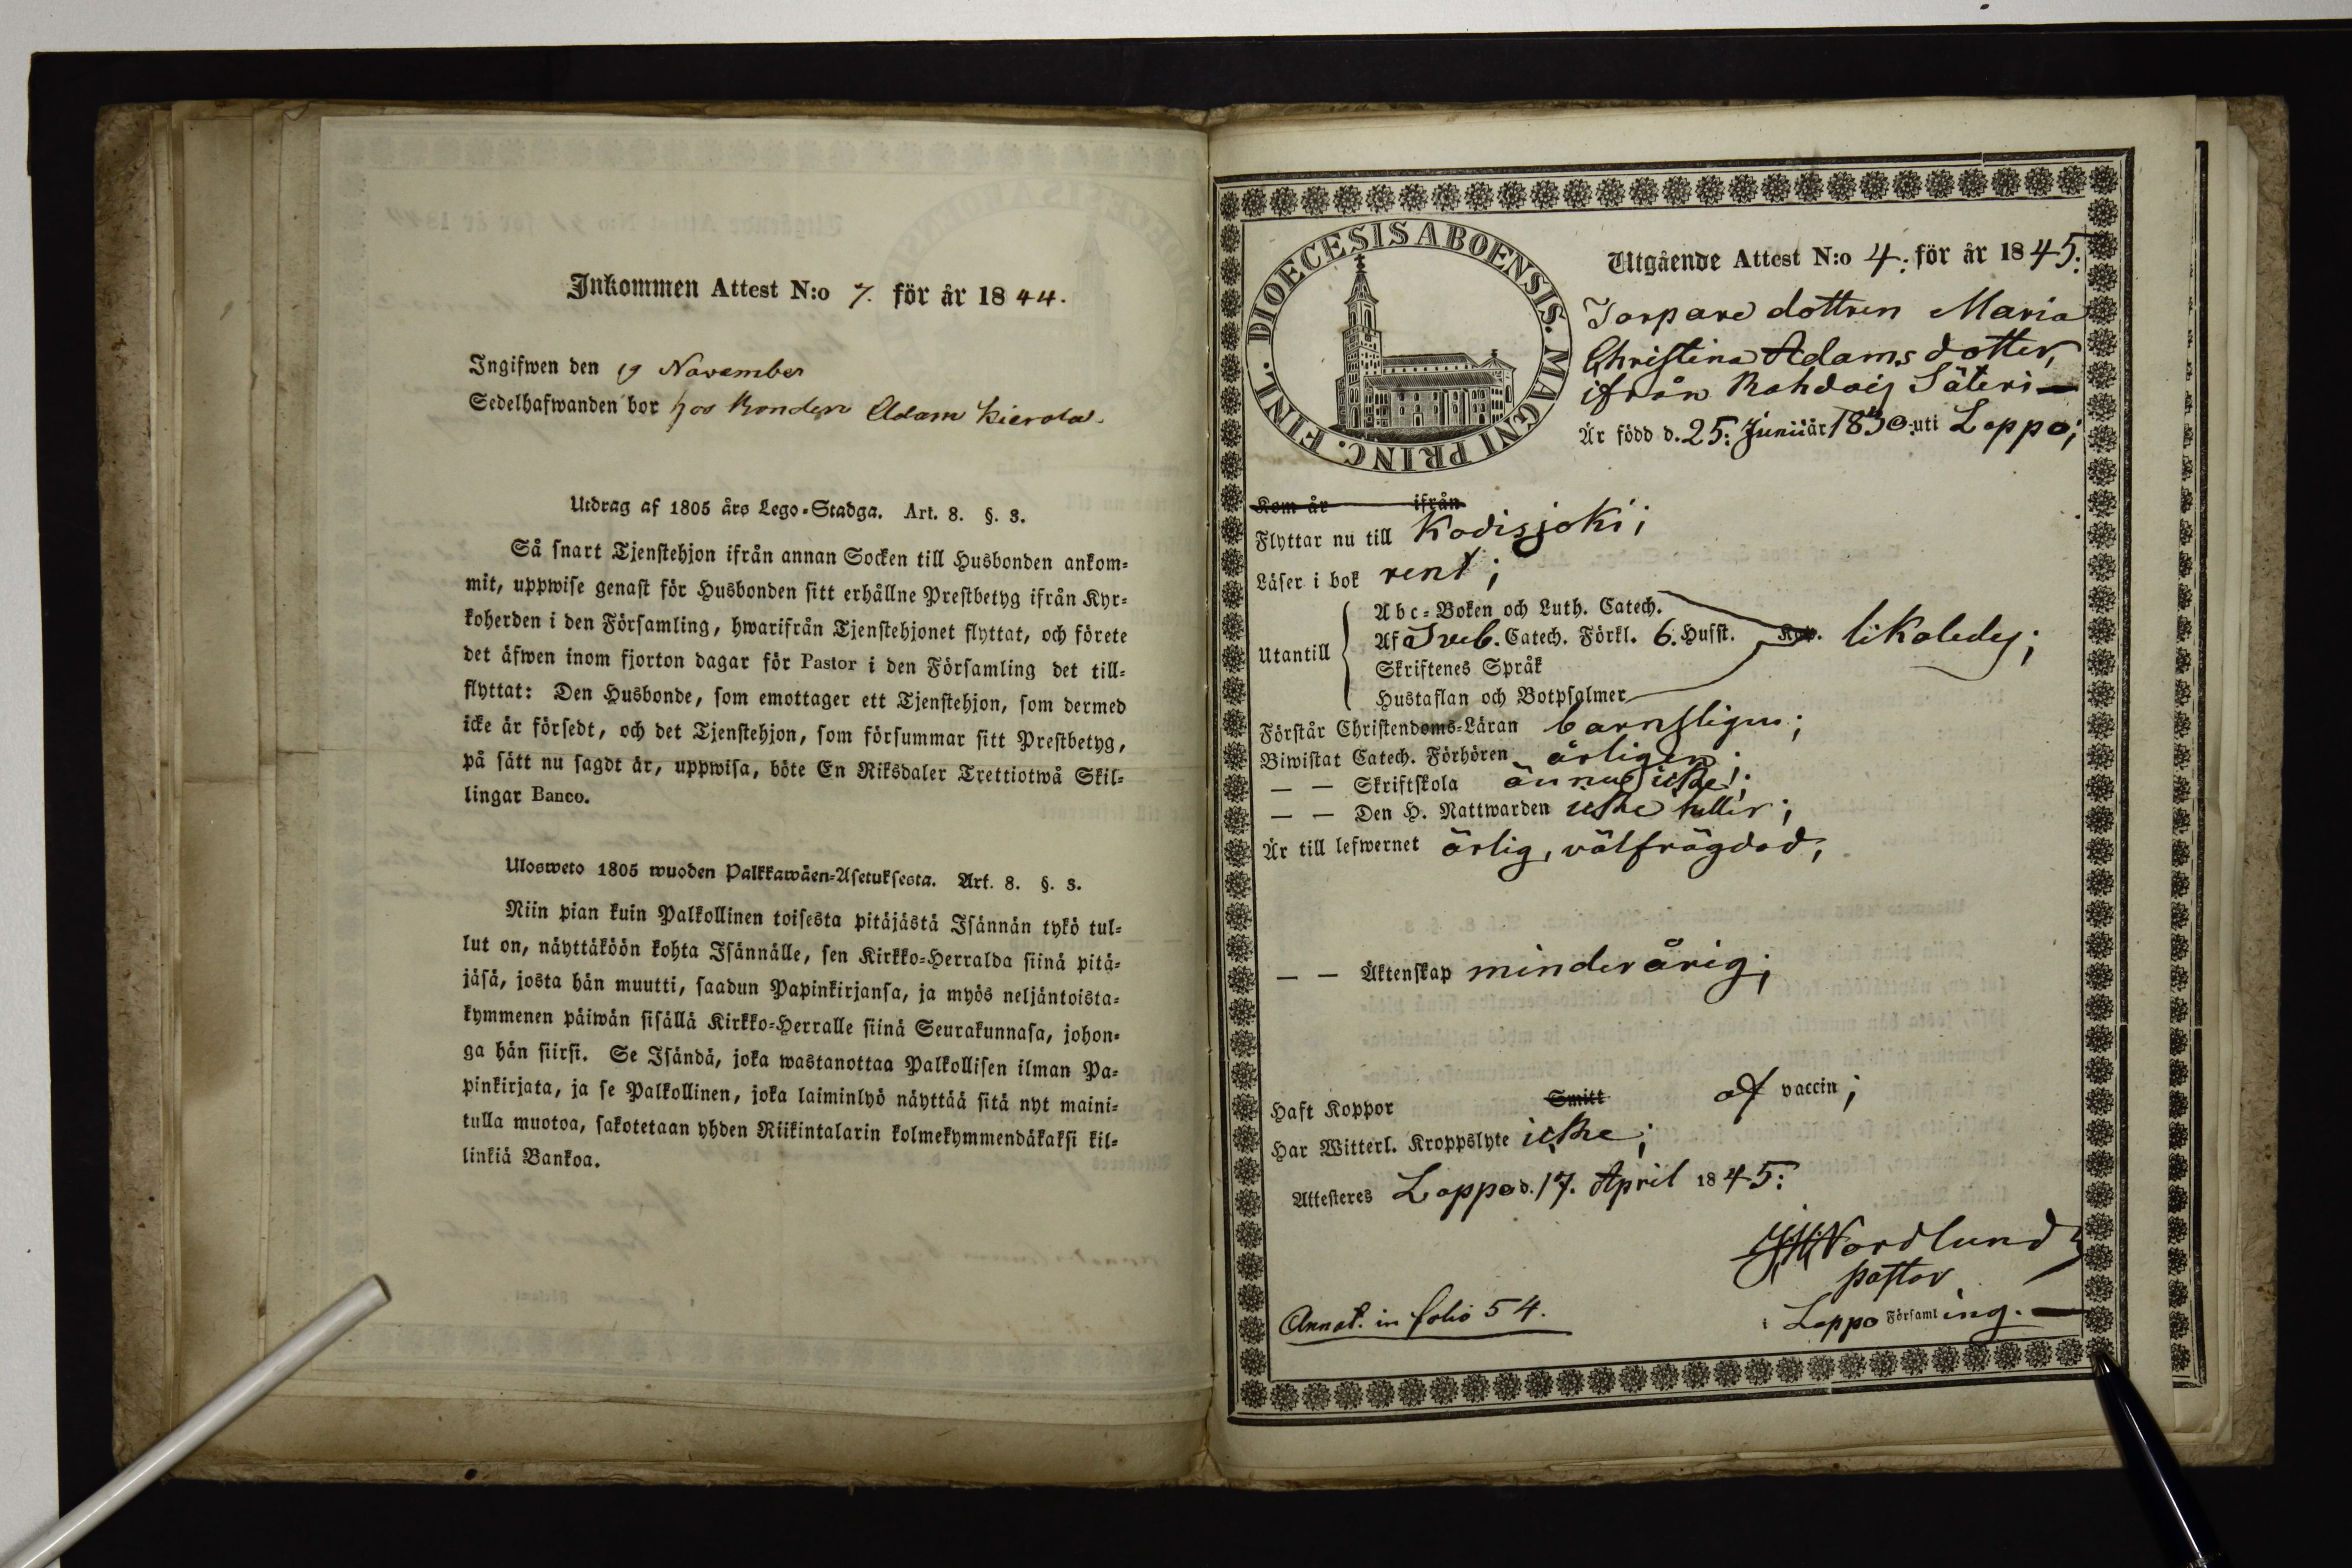 Inkommen Attest N:o 7. för år 1844.
Ingifwen den 19 November
Sedelhafwanden bor hos Bonden Adam Kierola.
Utdrag af 1805 års Lego-Stadga. Art. 8. §. 3.
Så snart Tjenstehjon ifrån annan Socken till Husbonden ankom-
mit, uppwise genast för Husbonden sitt erhållne Prestbetyg ifrån Kyr-
koherden i den Församling, hwarifrån Tjenstehjonet flyttat, och förete
det äfwen inom fjorton dagar för Pastor i den Församling det till-
flyttat: Den Husbonde, som emottager ett Tjenstehjon, som dermed
icke är försedt, och det Tjenstehjon, som försummar sitt Prestbetyg,
på sätt nu sagdt är, uppwisa, böte En Riksdaler Trettiotwå Skil-
lingar Banco.
Ulosweto 1805 wuoden Palkkawäen-Asetuksesta. Art. 8. §. 3.
Niin pian kuin Palkollinen toisesta pitäjästä Isännän tykö tul-
lut on, näyttäköön kohta Isännälle, sen Kirkko-Herralda siinä pitä-
jäsä, josta hän muutti, saadun Papinkirjansa, ja myös neljäntoista-
kymmenen päiwän sisällä Kirkko-Herralle siinä Seurakunnasa, johon-
ga hän siirsi. Se Isändä, joka wastanottaa Palkollisen ilman Pa-
pinkirjata, ja se Palkollinen, joka laiminlyö näyttää sitä nyt maini-
tulla muotoa, sakotetaan yhden Riikintalarin kolmekymmendäkaksi kil-
linkiä Bankoa.
DIOECESIS ABOENSIS. MAGNI PRINC. FINL.
Utgående Attest N:o 4. för år 1845.
Torpare dottren Maria
Christina Adamsdotter,
ifrån Säteri —
Är född d. 25: Junii år 1830 uti Loppo;
Kom år ifrån
Flyttar nu till Kodisjoki;
Läser i bok rent;
Utantill
Abc-Boken och Luth. Catech.
Af Sveb. Catech. Förkl. 6. Hufst. Kap. likaledes;
Skriftenes Språk
Hustaflan och Botpsalmer
Förstår Christendoms-Läran barnsligen;
Biwistat Catech. Förhören årligen;
— — Skriftskola ännu icke;
— — Den H. Nattwarden icke heller;
Är till lefwernet ärlig, välfrägdad;
— — Äktenskap minderårig;
Haft Koppor Smitt af vaccin;
Har Witterl. Kroppslyte icke;
Attesteres Loppo d. 17. April 1845:
Nordlund
pastor
i Loppo Församling. —
Annot. in folio 54.